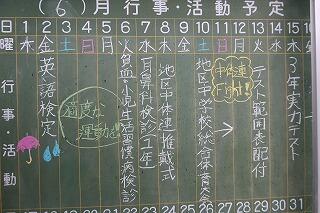 (6)月行事・活動予定
日 1 2 3 4 5 6 7 8 9 10 11 12 13 14 15
曜 木 金 土 日 月 火 水 木 金 土 日 月 火 水 木
行事・活動
英語検定
適度な
運動を!!
貧血・小児生活習慣病検診
耳鼻科検診(1年)
地区中体連推戴式
地区中学校総合体育大会
中体連
Fight!
テスト範囲表配付
3年実力テスト
日 17 18 19 20 21 22 23 24 25 26 27 28 29 30 31